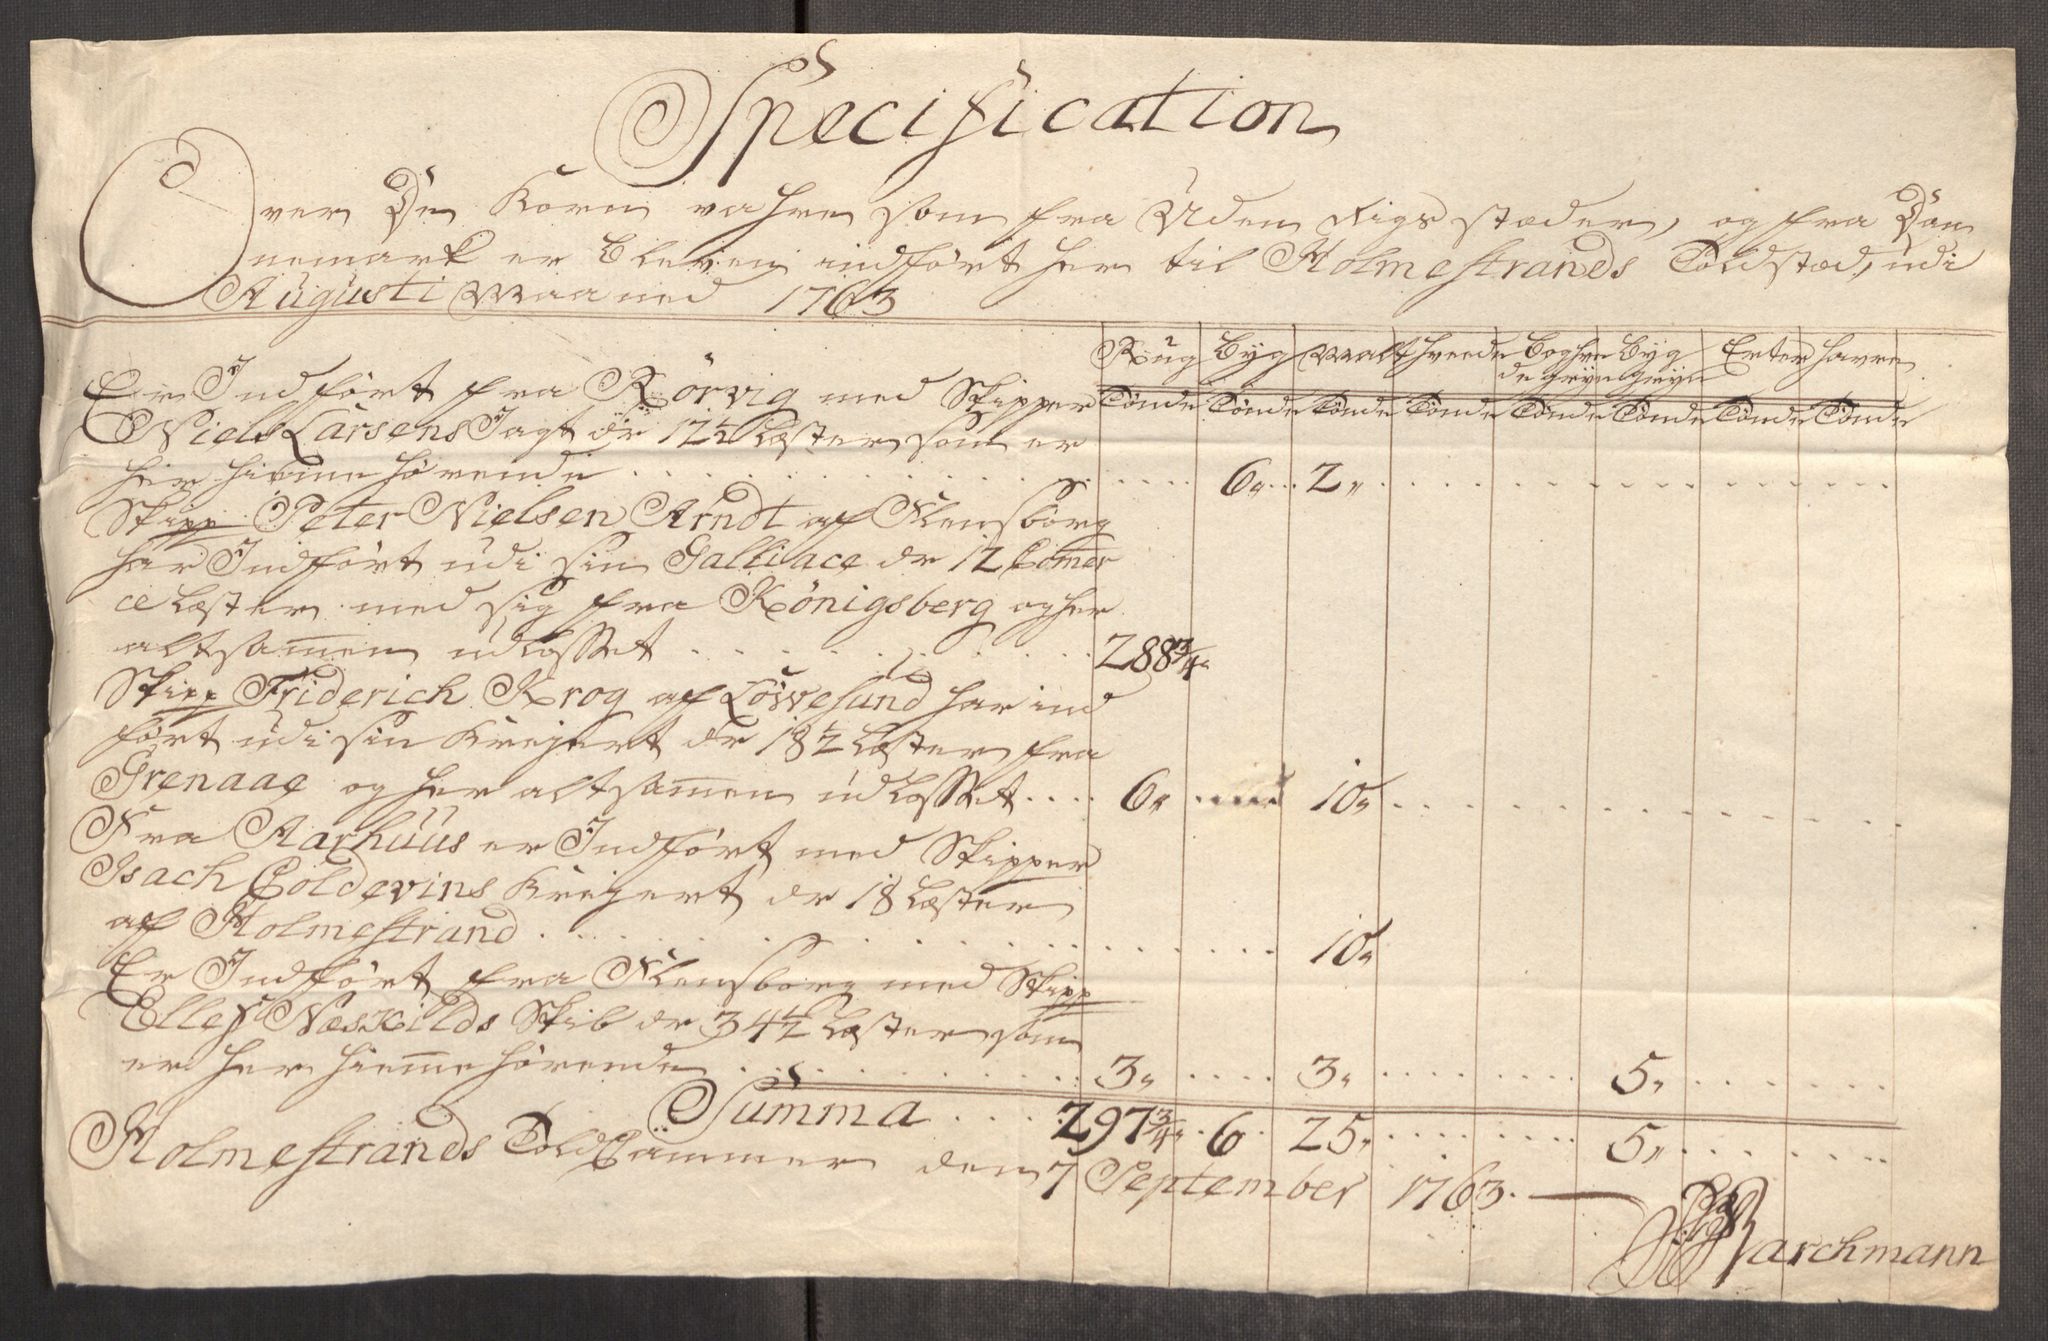 Specification
Over De Korn vahre som fra Uden Rigs stæder, og fra Dan
nemark er bleven indført her til Holmestrands Toldstæd, udi
Augusti Maaned 1763
Rug Byg Malt Hvede Boghve Byg Erter Havre
de gryn gryn
Tönde Tönde Tönde Tönde Tönde Tönde Tönde Tönde
Er Indført fra Rörvig med Skipper
Niels Larsens Jagt dr 12½ Læster som er
her hiemmehørende . . . . . 6„ . . 2„ . . . . .
Skipp Peter Nielsen Arndt af Flensborg
har Indført udi sin Galliace dr 12 Comer
ce Læster med sig fra Königsberg og her
altsamen udlosset . . . . . 288¾„
Skipp Friderich Krog af Löwesund har ind
ført udi sin Krejert dr 18½ Læster fra
Grenaae og her altsamen udlosset . . . . 6„ . . . . 10„ . . . . .
Fra Aarhuus er Indført med Skipper
Isach Coldevins Krejert dr 18 Læster
af Holmestrand . . . . . 10„
Er Indført fra Flensborg med Skipp
Ellef Næskilds Skib dr 34½ Læster som
er her hiemmehørende . . . . . 3„ . . . . 3„ . . . . . 5„ . . . . .
Summa . . . . 297¾„ . 6 . 25„ . . . . . 5„ . . . . .
Holmestrands Toldkammer den 7 September 1763.
Barchmann